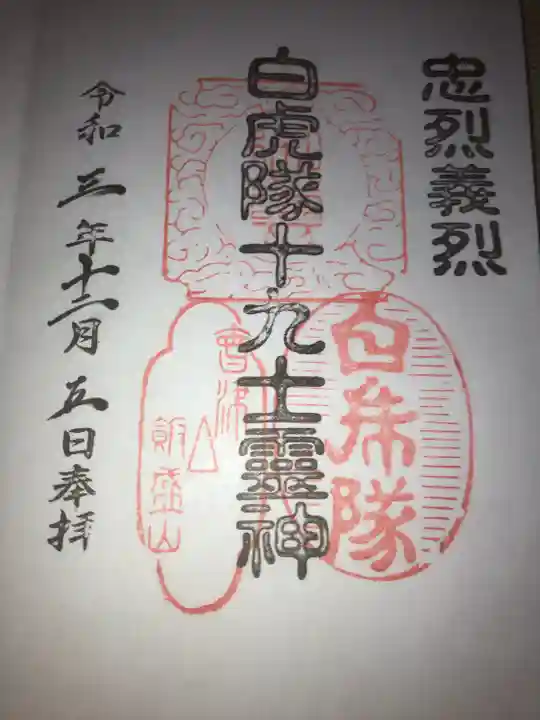 忠烈義烈
白虎隊十九士靈神
白乕隊
會津
飯盛山
令和三年十二月五日奉拝